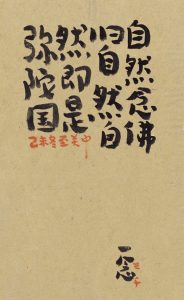 自然念佛
归自然自
然即是
弥陀国
乙未冬至关中
一念